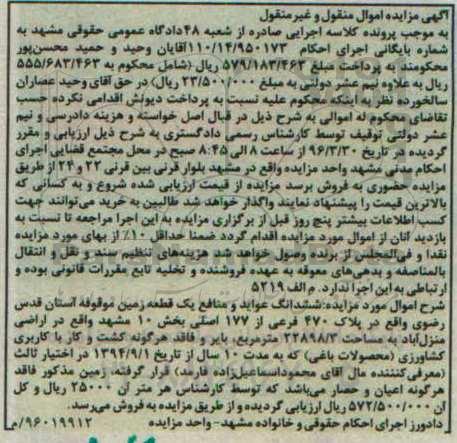 آگهی مزایده اموال منقول و غیر منقول
به موجب پرونده کلاسه اجرایی صادره از شعبه ۴۸ دادگاه عمومی حقوقی مشهد به
شماره بایگانی اجرای احکام ۱۱۰/۱۴/۹۵۰۱۷۳ آقایان وحید و حمید محسن‌پور
محکومند به پرداخت مبلغ ۵۷۹/۱۸۳/۴۶۳ ریال (شامل محکوم به ۵۵۵/۶۸۳/۴۶۳
ریال به علاوه نیم عشر دولتی به مبلغ ۲۳/۵۰۰/۰۰۰ ریال) در حق آقای وحید عصاران
سالخورده نظر به اینکه محکوم علیه نسبت به پرداخت دیونش اقدامی نکرده حسب
تقاضای محکوم له اموالی به شرح ذیل در قبال اصل خواسته و هزینه دادرسی و نیم
عشر دولتی توقیف توسط کارشناس رسمی دادگستری به شرح ذیل ارزیابی و مقرر
گردیده در تاریخ ۹۶/۳/۳۰ از ساعت ۸ الی ۸:۴۵ صبح در محل مجتمع قضایی اجرای
احکام مدنی مشهد واحد مزایده واقع در مشهد بلوار قرنی بین قرنی ۲۲ و ۲۴ از طریق
مزایده حضوری به فروش برسد مزایده از قیمت ارزیابی شده شروع و به کسانی که
بالاترین قیمت را پیشنهاد نمایند واگذار خواهد شد طالبین به خرید می‌توانند جهت
کسب اطلاعات بیشتر پنج روز قبل از برگزاری مزایده به این اجرا مراجعه تا نسبت به
بازدید آنان از اموال مورد مزایده اقدام گردد ضمنا حداقل ۱۰٪ از بهای مورد مزایده
نقدا و فی‌المجلس از برنده وصول خواهد شد هزینه‌های تنظیم سند و نقل و انتقال
بالمناصفه و بدهی‌های معوقه به عهده فروشنده و تخلیه تابع مقررات قانونی بوده و
ارتباطی به این اجرا ندارد. م الف ۵۲۱۹
شرح اموال مورد مزایده: ششدانگ عواید و منافع یک قطعه زمین موقوفه آستان قدس
رضوی واقع در پلاک ۴۷۰ فرعی از ۱۷۷ اصلی بخش ۱۰ مشهد واقع در اراضی
منزل‌آباد به مساحت ۲۲۸۹۸/۳ مترمربع، بایر و فاقد هرگونه کشت و کار با کاربری
کشاورزی (محصولات باغی) که به مدت ۱۰ سال از تاریخ ۱۳۹۴/۹/۱ در اختیار ثالث
(معرفی‌کننده مال آقای محموداسماعیل‌زاده فارمد) قرار گرفته، زمین مذکور فاقد
هرگونه اعیان و حصار می‌باشد که توسط کارشناس هر متر آن ۲۵۰۰۰ ریال و کل
آن ۵۷۲/۵۰۰/۰۰۰ ریال ارزیابی گردیده و از طریق مزایده به فروش می‌رسد.
دادورز اجرای احکام حقوقی و خانواده مشهد- واحد مزایده ۹۶۰۱۹۹۱۲/م